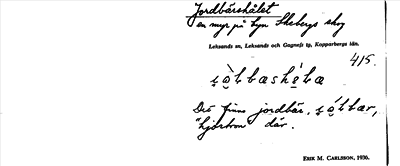 Jordbärshålet
en myr på byn Skebergs skog
Leksands sn, Leksands och Gagnefs tg, Kopparbergs län.
415.
Det finns jordbär,
"hjortron där.
ERIK M. CARLSSON, 1936.